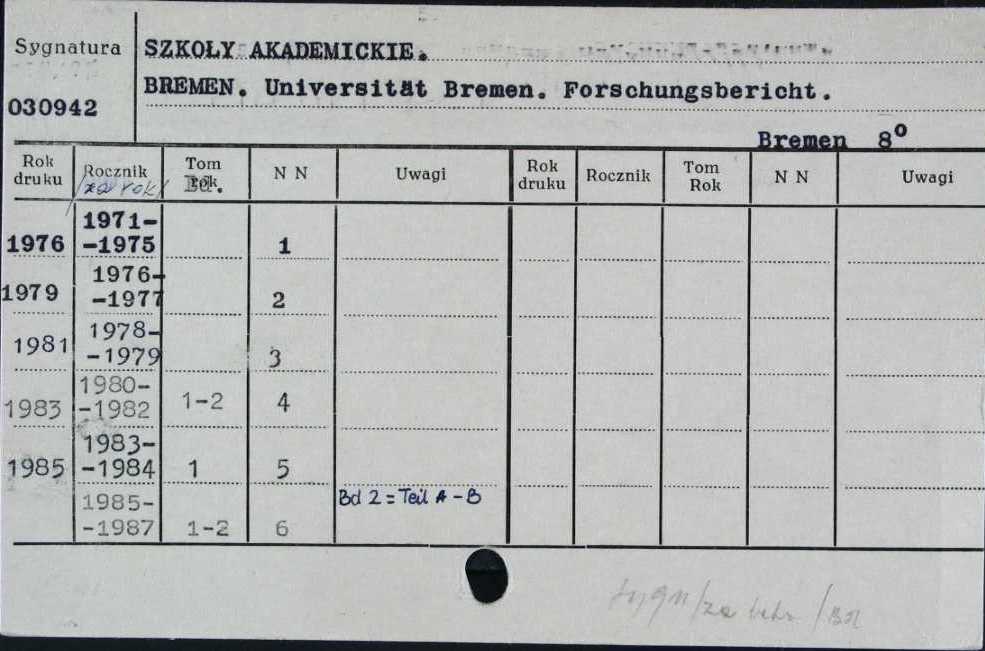 Sygnatura
SZKOŁY AKADEMICKIE.
030942
BREMEN. Universität Bremen. Forschungsbericht.
Bremen 8º
Rok druku Rocznik Tom N N Uwagi Rok druku Rocznik Tom Rok N N Uwagi
/za rok/ Bd.
1971-
1976 -1975 1
1976-
1979 -1977 2
1978-
1981 -1979 3
1980-
1983 -1982 1-2 4
1983-
1985 -1984 1 5
1985- Bd 2 = Teil A - B
-1987 1-2 6